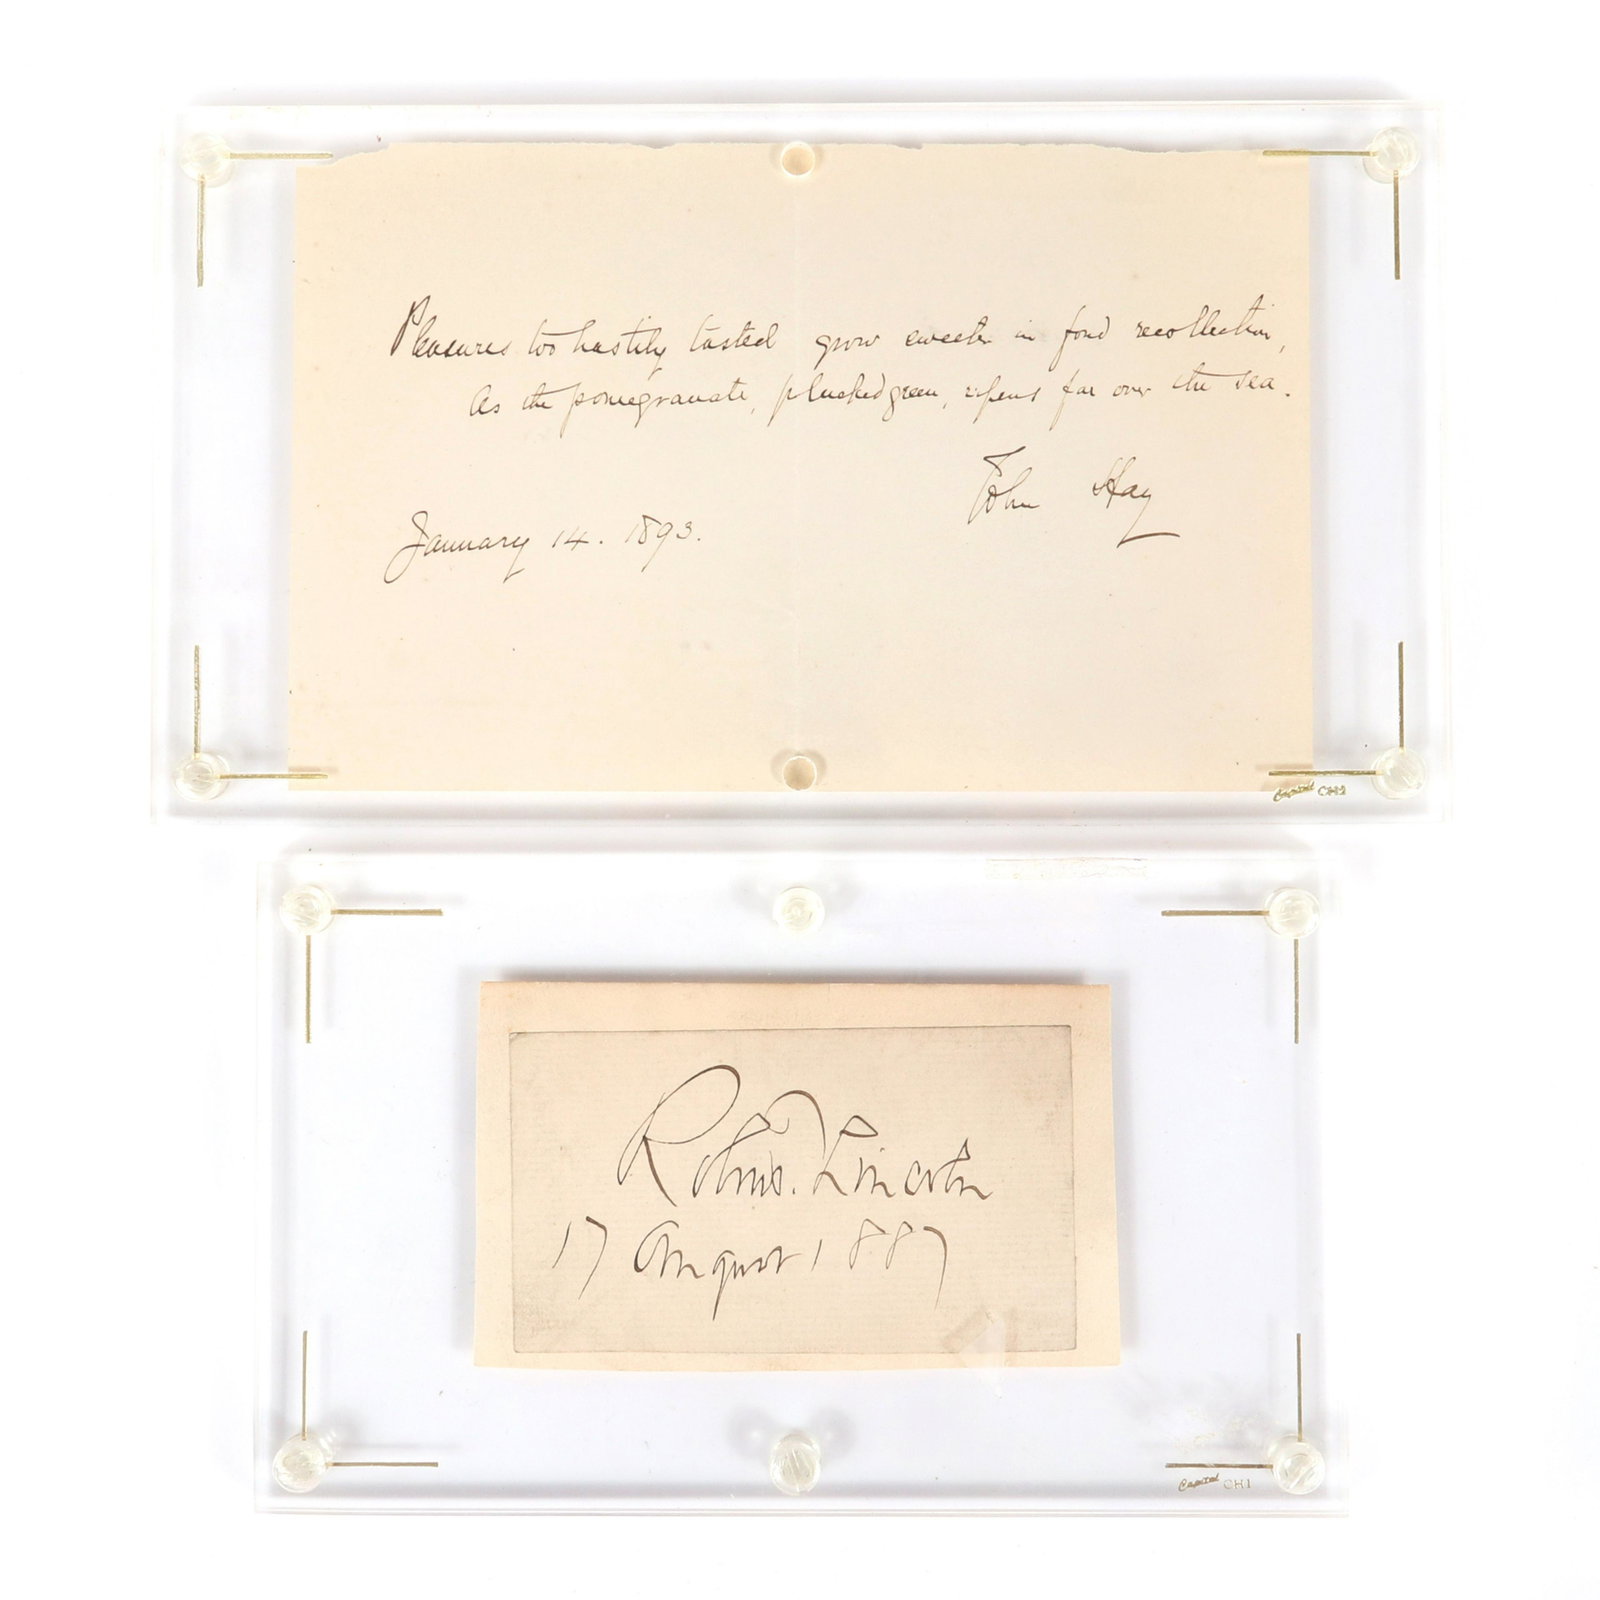 Pleasures too hastily tasted grow sweeter in fond recollection,
As the pomegranate, plucked green, ripens far over the sea.
John Hay
January 14. 1893.
Capital CH2
Robt T. Lincoln
17 August 1887
Capital CH1